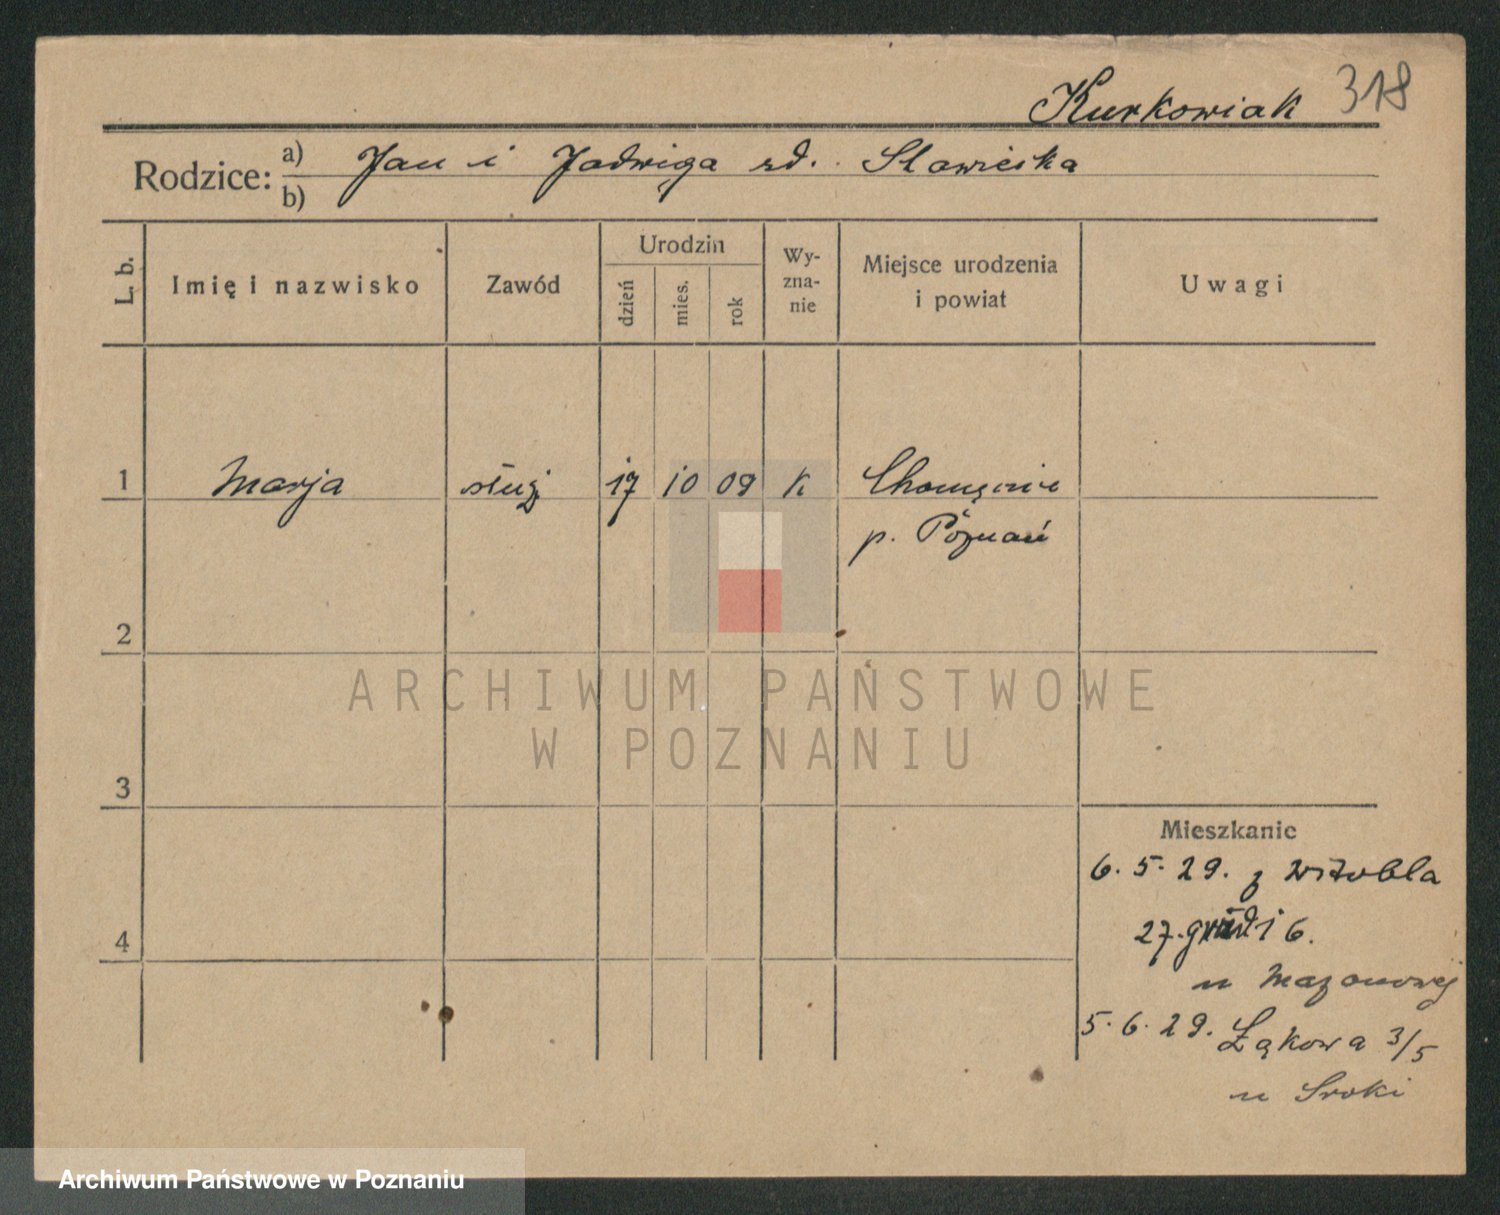 Kurkowiak 318
Rodzice: a) Jan i Jadwiga zd. Sławieska
b)
L. b. Imię i nazwisko Zawód Urodzin dzień mies. rok Wy-zna-nie Miejsce urodzenia i powiat Uwagi
1 Marja służ 17 10 09 K Chomęcice
p. Poznań
2
3
Mieszkanie
6. 5. 29. z Witobla
4 27. 6.
u Mazanowej
5. 6. 29. Łąkowa 3/5
u Sroki
ARCHIWUM PAŃSTWOWE
W POZNANIU
Archiwum Państwowe w Poznaniu